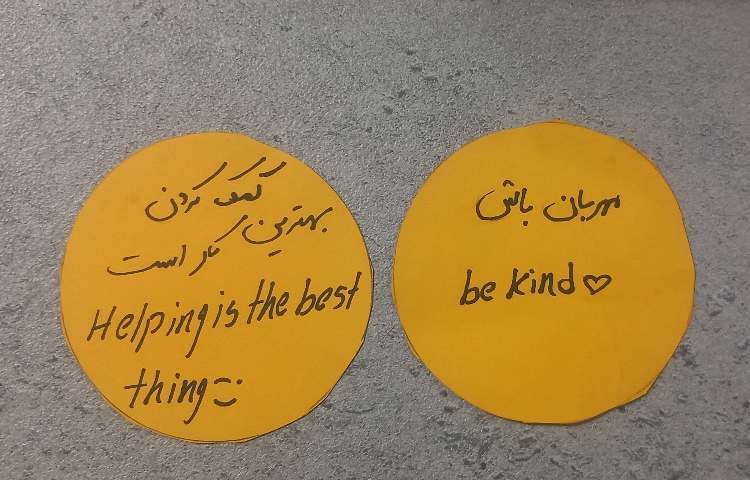 کمک کردن
بهترین
کار است
Helping is the best
thing
مهربان باش
be kind♡